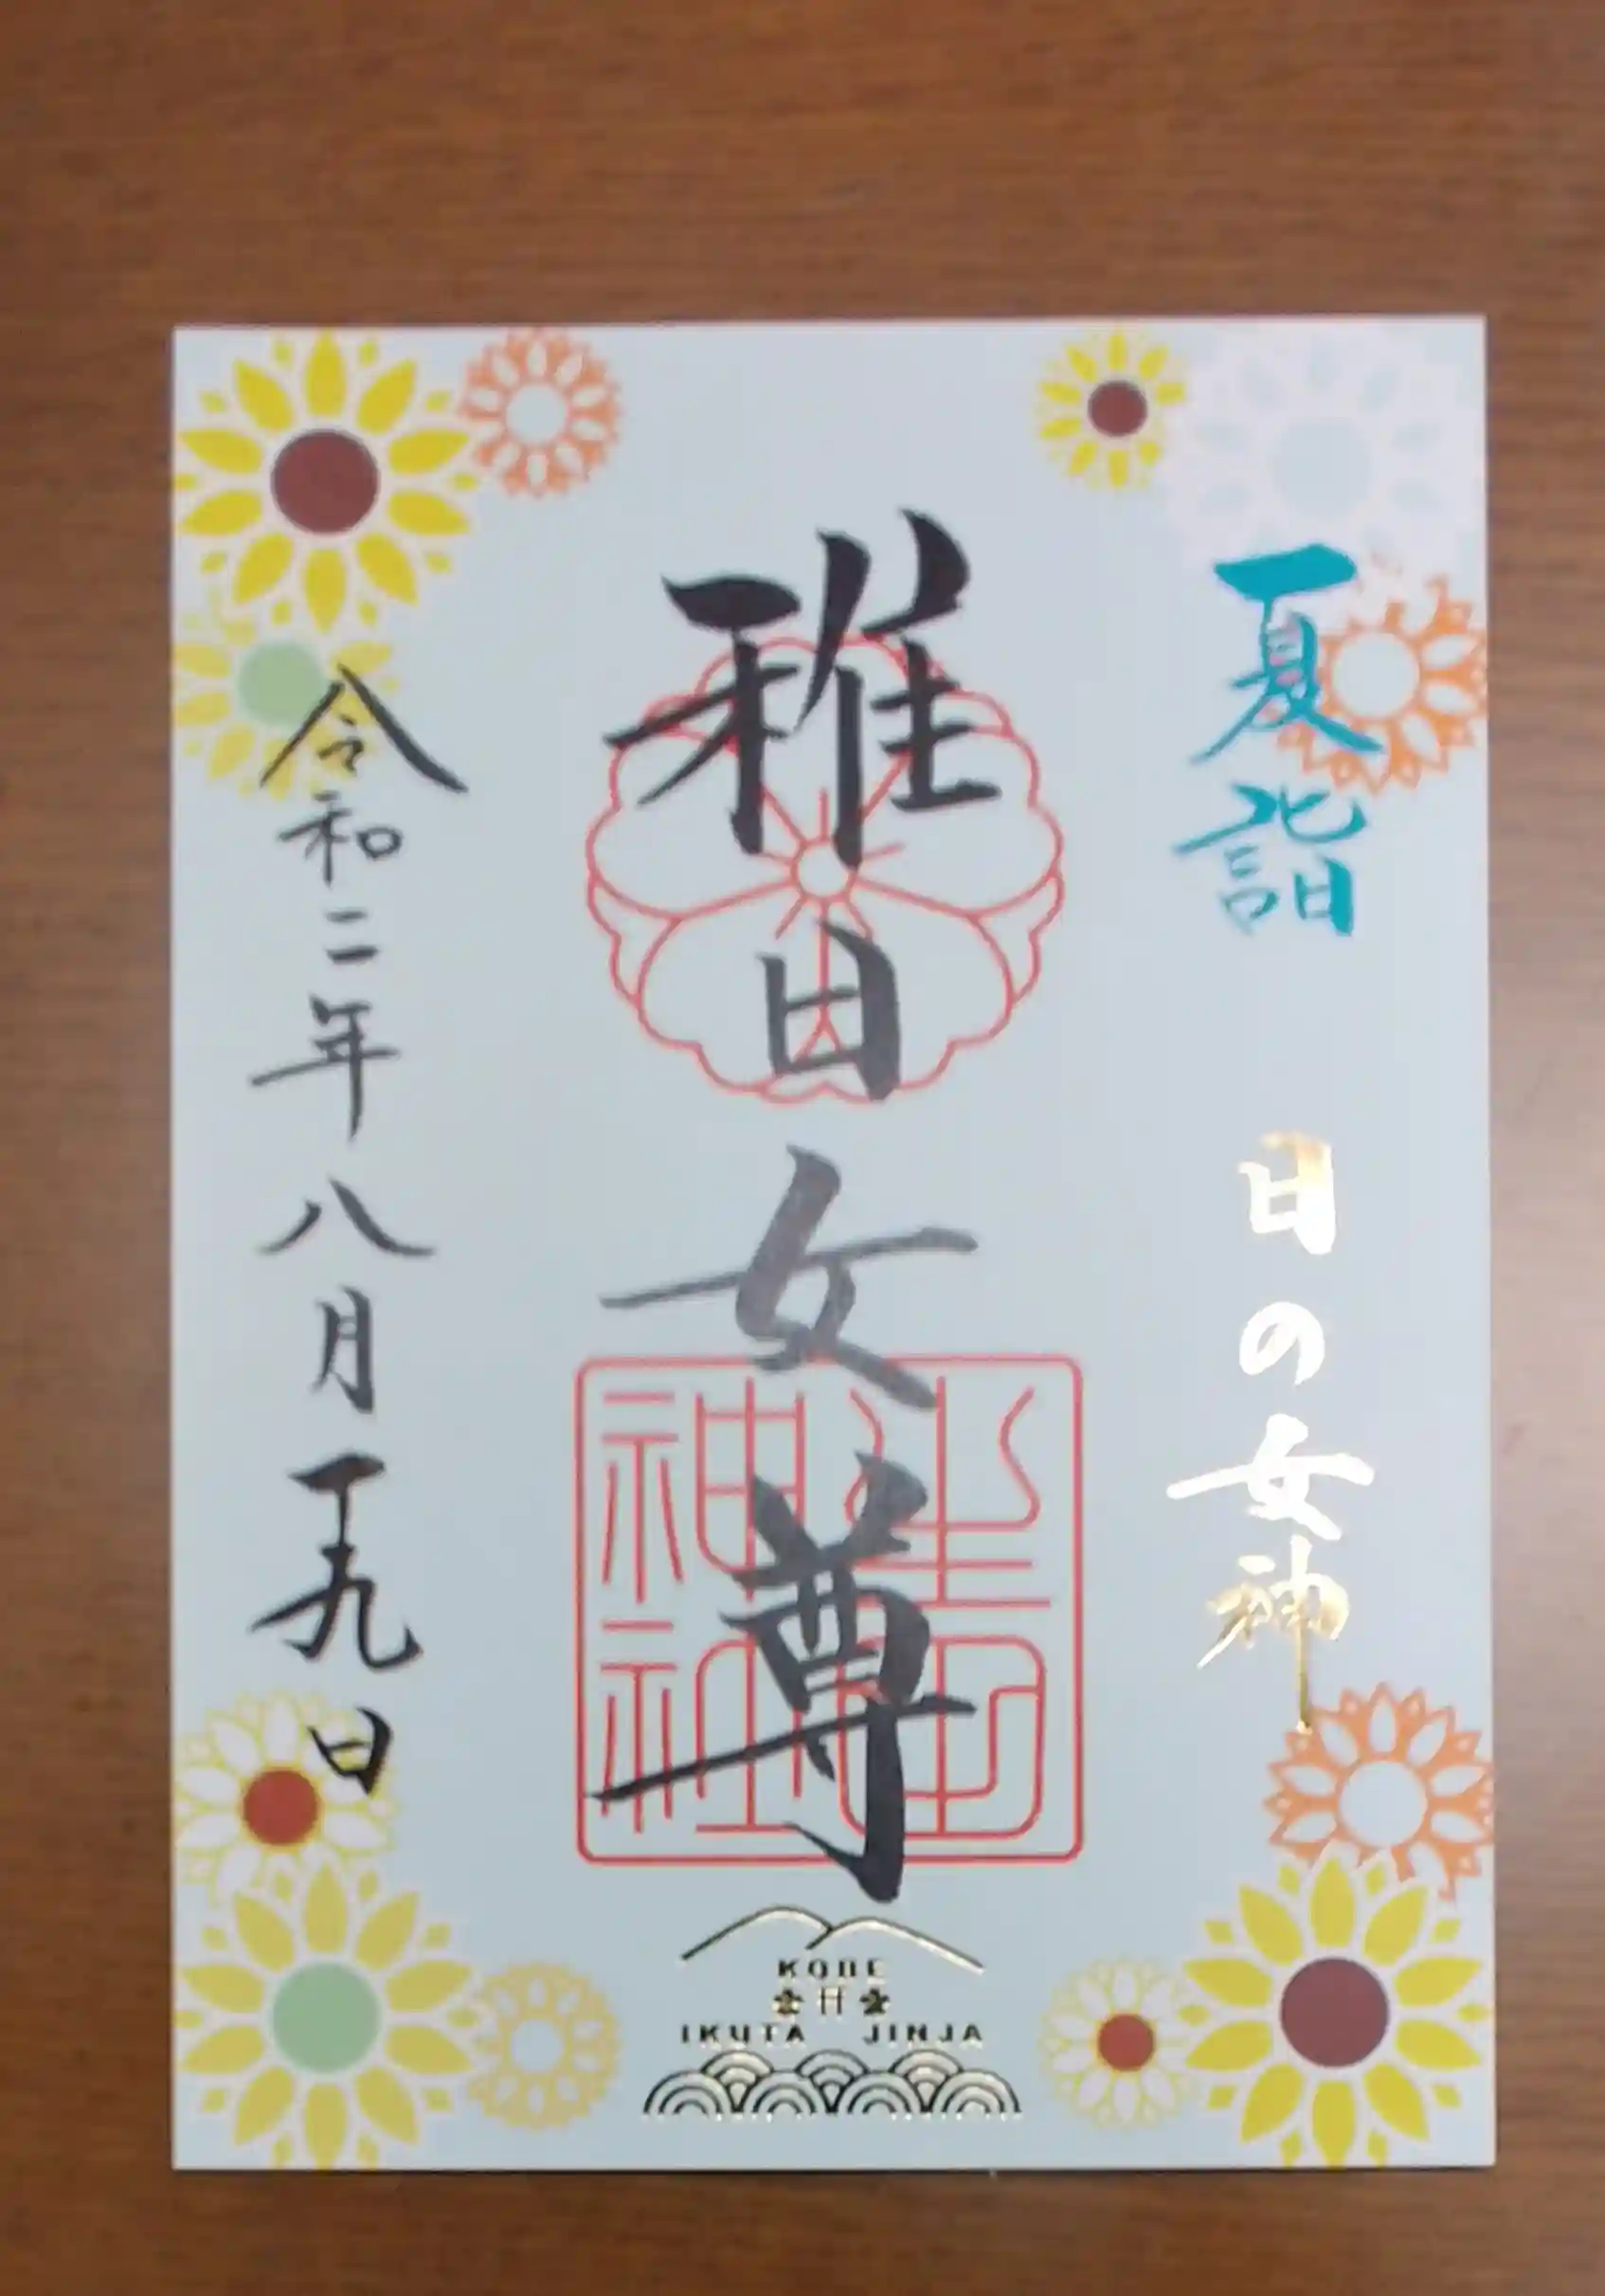 夏詣
日の女神
稚日女尊
生田神社
令和二年八月十九日
KOBE
IKUTA JINJA